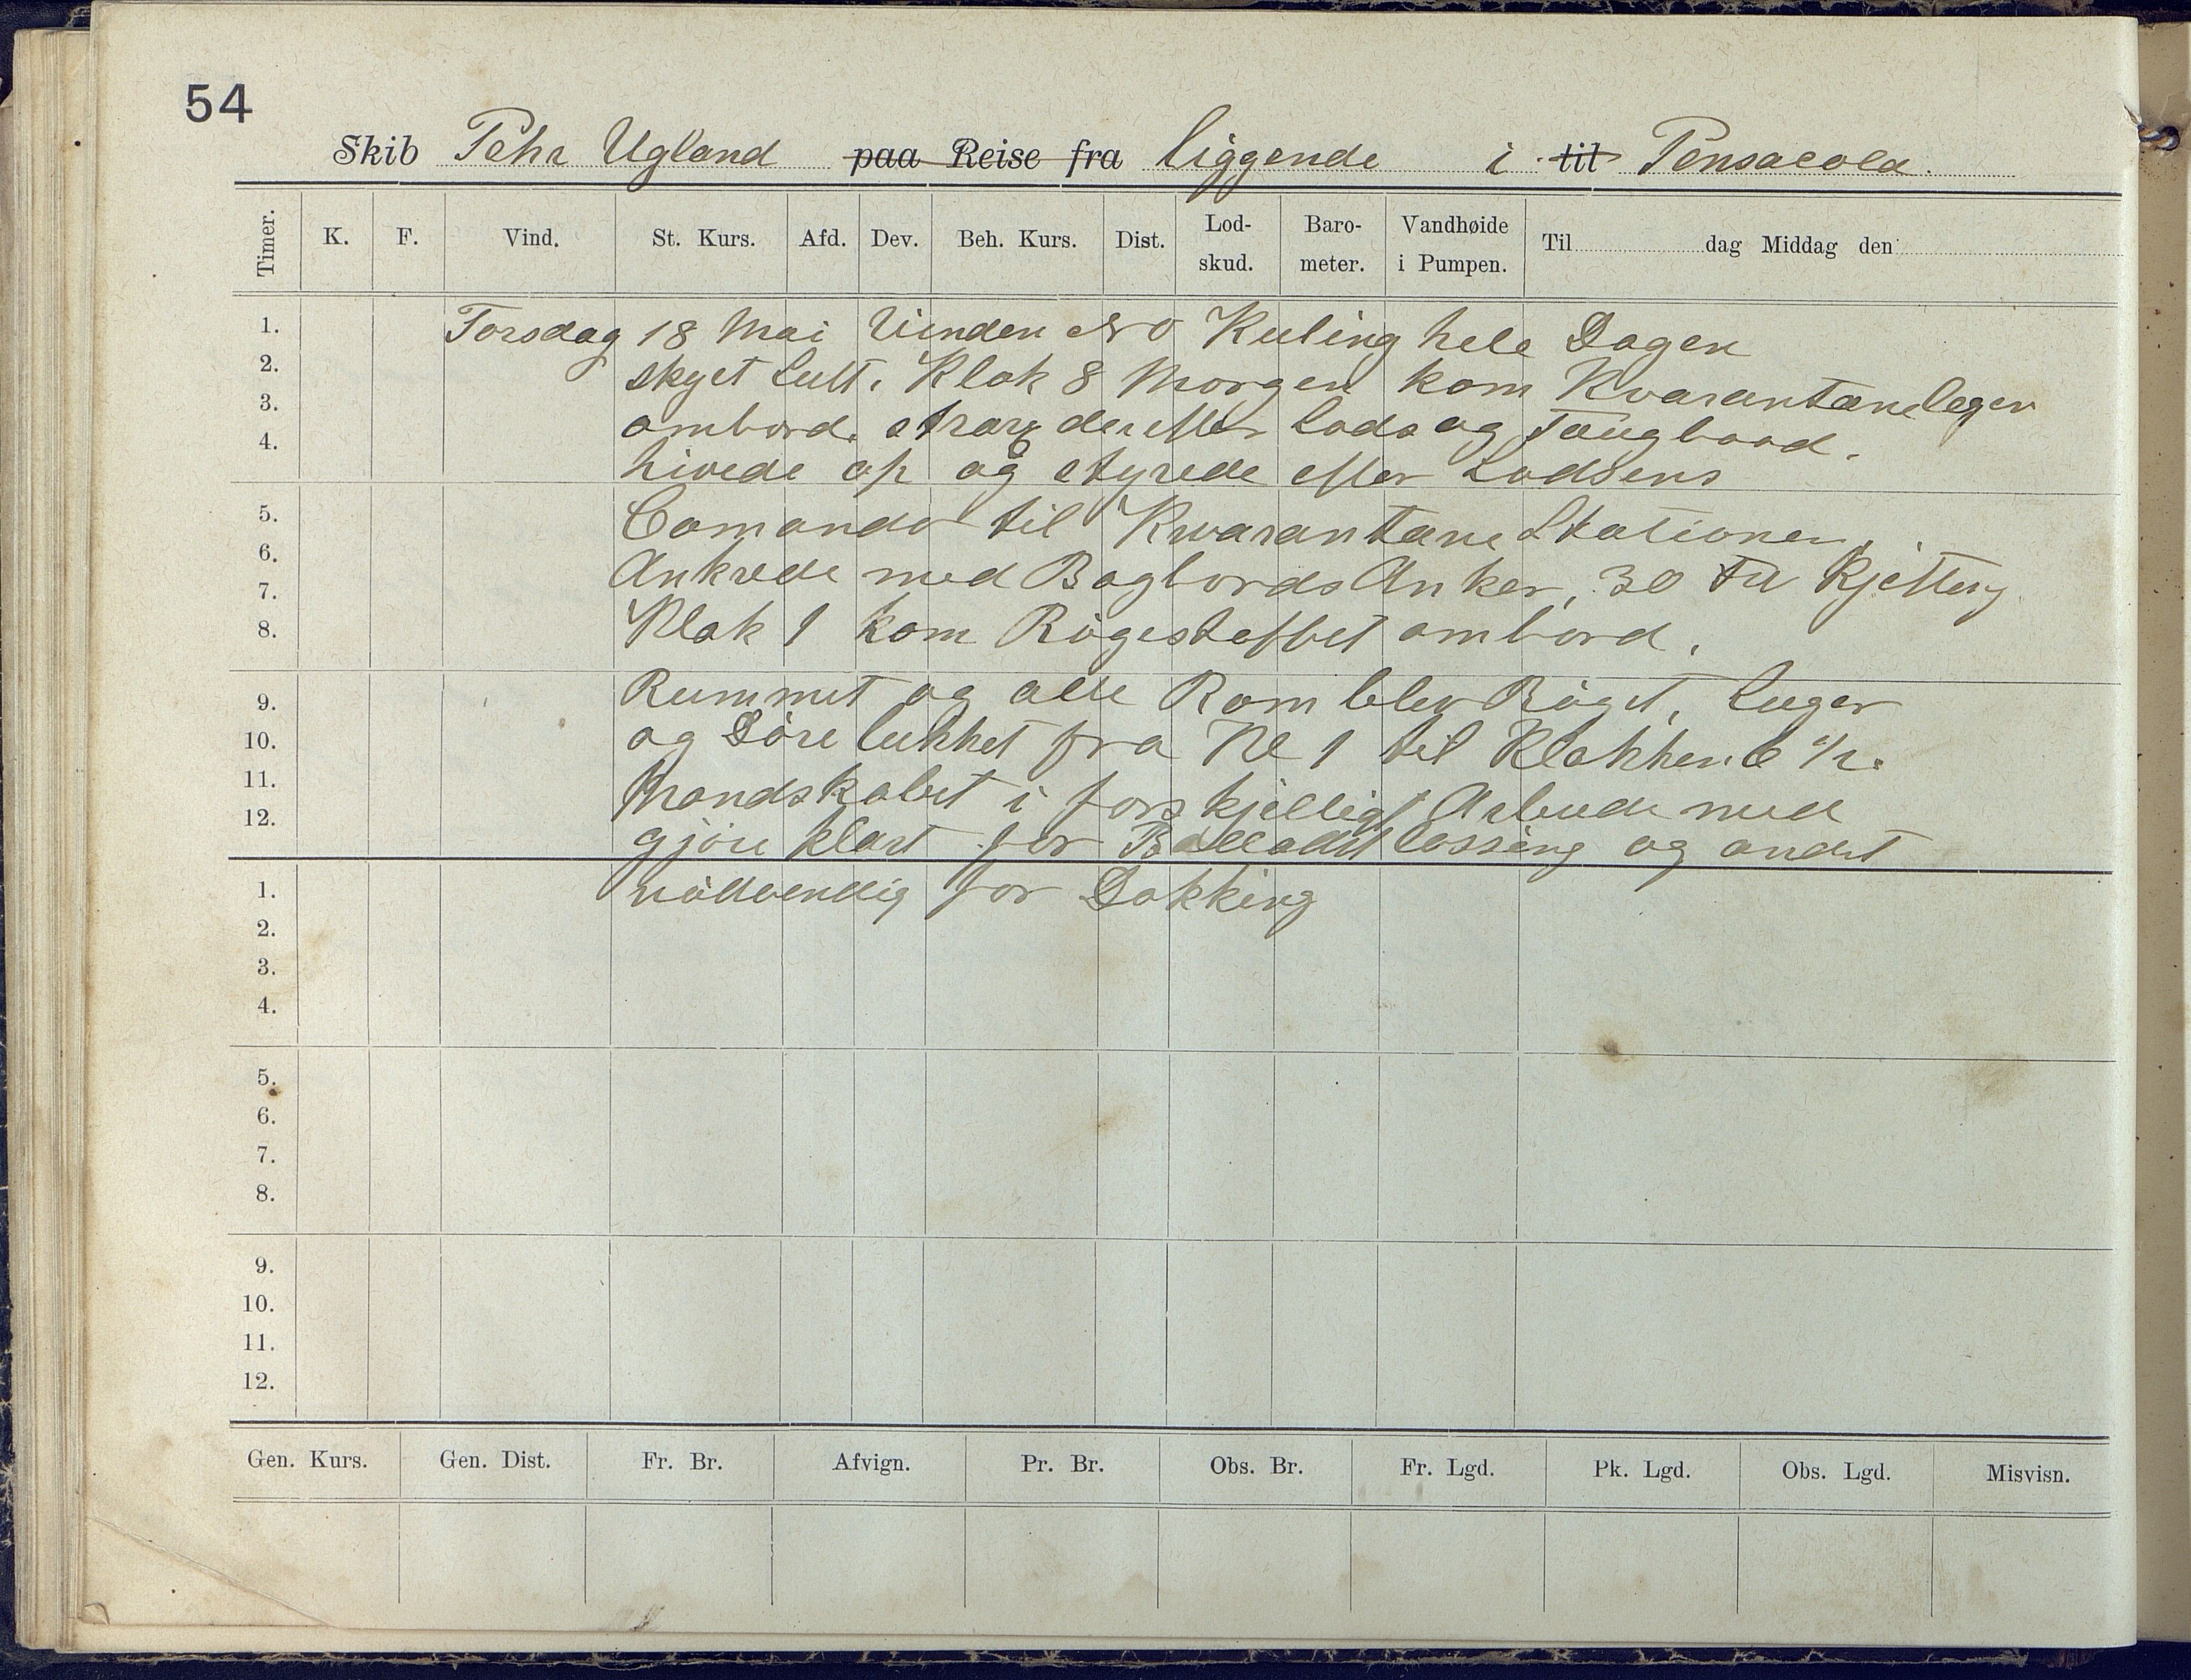 54
Skib Pehr Ugland paa Reise fra liggende i til Pensacola.
Timer. K. F. Vind. St. Kurs. Afd. Dev. Beh. Kurs. Dist. Lod-skud. Baro-meter. Vandhøide i Pumpen. Til dag Middag den
1. Torsdag 18 Mai Vinden NO Kuling hele Dagen
2. skyet Luft. Klok 8 Morgen kom Kvarantænelegen
3. ombord. strax derefter Lods og Taugbaad.
4. hivede op og styrede efter Lodsens
5. Comando til Kvarantæne Stationen.
6. Ankrede med Bagbords Anker, 30 Kjetting
7.
8. Klok 1 kom Rögestaffet ombord.
9. Rummet og alle Rom blev Röget, Luger
10. og Döre lukket fra Kl 1 til Klokken 6 1/2.
11. Mandskabet i forskjelligt Arbeide med
12. gjöre klart for Ballastlossing og andet
1. nödvendig for Dokking
2.
3.
4.
5.
6.
7.
8.
9.
10.
11.
12.
Gen. Kurs. Gen. Dist. Fr. Br. Afvign. Pr. Br. Obs. Br. Fr. Lgd. Pk. Lgd. Obs. Lgd. Misvisn.